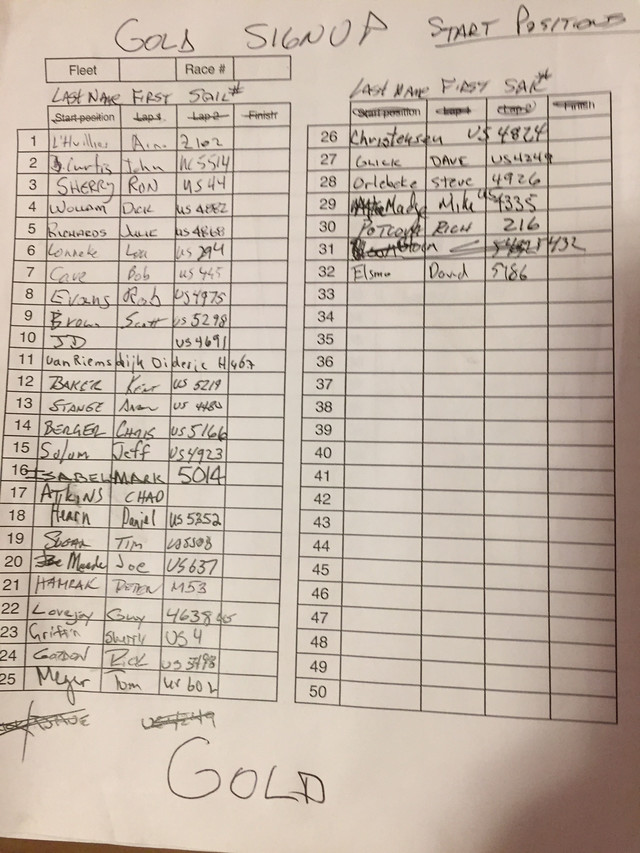 GOLD SIGNUP START POSITIONS
Fleet Race #
LAST NAME FIRST SAIL#
Start position Lap 1 Lap 2 Finish
1 L'Huillier 2102
2 Curtis John 5514
3 SHERRY RON US 44
4 DICK US 4882
5 RICHARDS JULIE US 4868
6 Lonneke Lou US 294
7 Cave Bob US 445
8 Evans Rob US4975
9 Brown Scott US 5298
10 JD US4691
11 van Riemsdijk Dideric H 467
12 BAKER Kent US 5219
13 STANGE US
14 BERGER CHRIS US5166
15 Solum Jeff US4923
16 ISABELL MARK 5014
17 ATKINS CHAD
18 Hearn Daniel US 5352
19 TIM
20 Meade Joe US 637
21 HAMRAK PETER M53
22 Lovejoy Guy 4638 US
23 Griffin US 4
24 GORDON RICK US 3498
25 Meyer Tom US 602
US4249
LAST NAME FIRST SAIL#
Start position Lap 1 Lap 2 Finish
26 Christensen US 4824
27 GLICK DAVE US4249
28 Orlebeke Steve 4926
29 Madge Mike US 4335
30 POTCOVA RICH 216
31 5432
32 Elsmo David 5186
33
34
35
36
37
38
39
40
41
42
43
44
45
46
47
48
49
50
GOLD